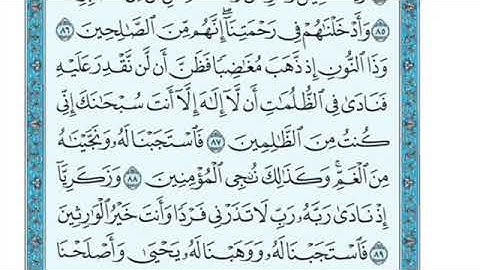 ٨٥ وَأَدْخَلْنَٰهُمْ فِى رَحْمَتِنَآ إِنَّهُم مِّنَ ٱلصَّٰلِحِينَ ٨٦
وَذَا ٱلنُّونِ إِذ ذَّهَبَ مُغَٰضِبًا فَظَنَّ أَن لَّن نَّقْدِرَ عَلَيْهِ
فَنَادَىٰ فِى ٱلظُّلُمَٰتِ أَن لَّآ إِلَٰهَ إِلَّآ أَنتَ سُبْحَٰنَكَ إِنِّى
كُنتُ مِنَ ٱلظَّٰلِمِينَ ٨٧ فَٱسْتَجَبْنَا لَهُۥ وَنَجَّيْنَٰهُ
مِنَ ٱلْغَمِّ ۚ وَكَذَٰلِكَ نُۨجِى ٱلْمُؤْمِنِينَ ٨٨ وَزَكَرِيَّآ
إِذْ نَادَىٰ رَبَّهُۥ رَبِّ لَا تَذَرْنِى فَرْدًا وَأَنتَ خَيْرُ ٱلْوَٰرِثِينَ
٨٩ فَٱسْتَجَبْنَا لَهُۥ وَوَهَبْنَا لَهُۥ يَحْيَىٰ وَأَصْلَحْنَا